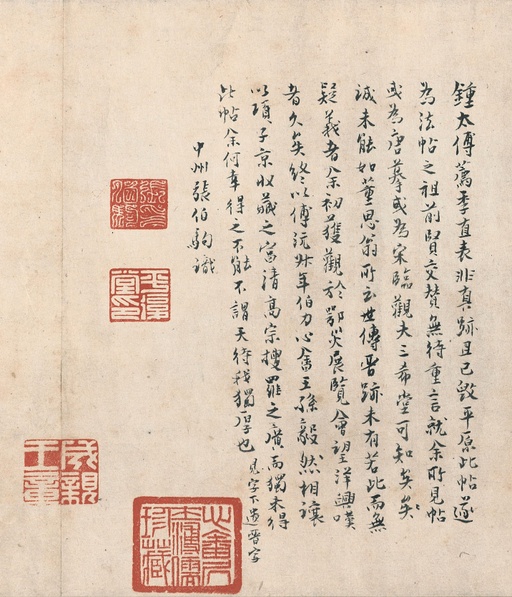 鍾太傅薦季直表非真跡且已毀平原此帖遂
為法帖之祖前賢交贊無待重言就余所見帖
或為唐摹或為宋臨觀夫三希堂可知矣矣
誠未能如董思翁所云世傳晉跡未有若此而無
疑義者余初獲觀於鄂災展覽會望洋興嘆
者久矣終以傅沅叔年伯力心畬王孫毅然相讓
以項子京收藏之富清高宗搜羅之廣而獨未得
此帖余何幸得之不能不謂天待我獨厚也 見字下遺晉字
中州張伯駒識
平復堂印
心畬溥儒珍藏
成親王章